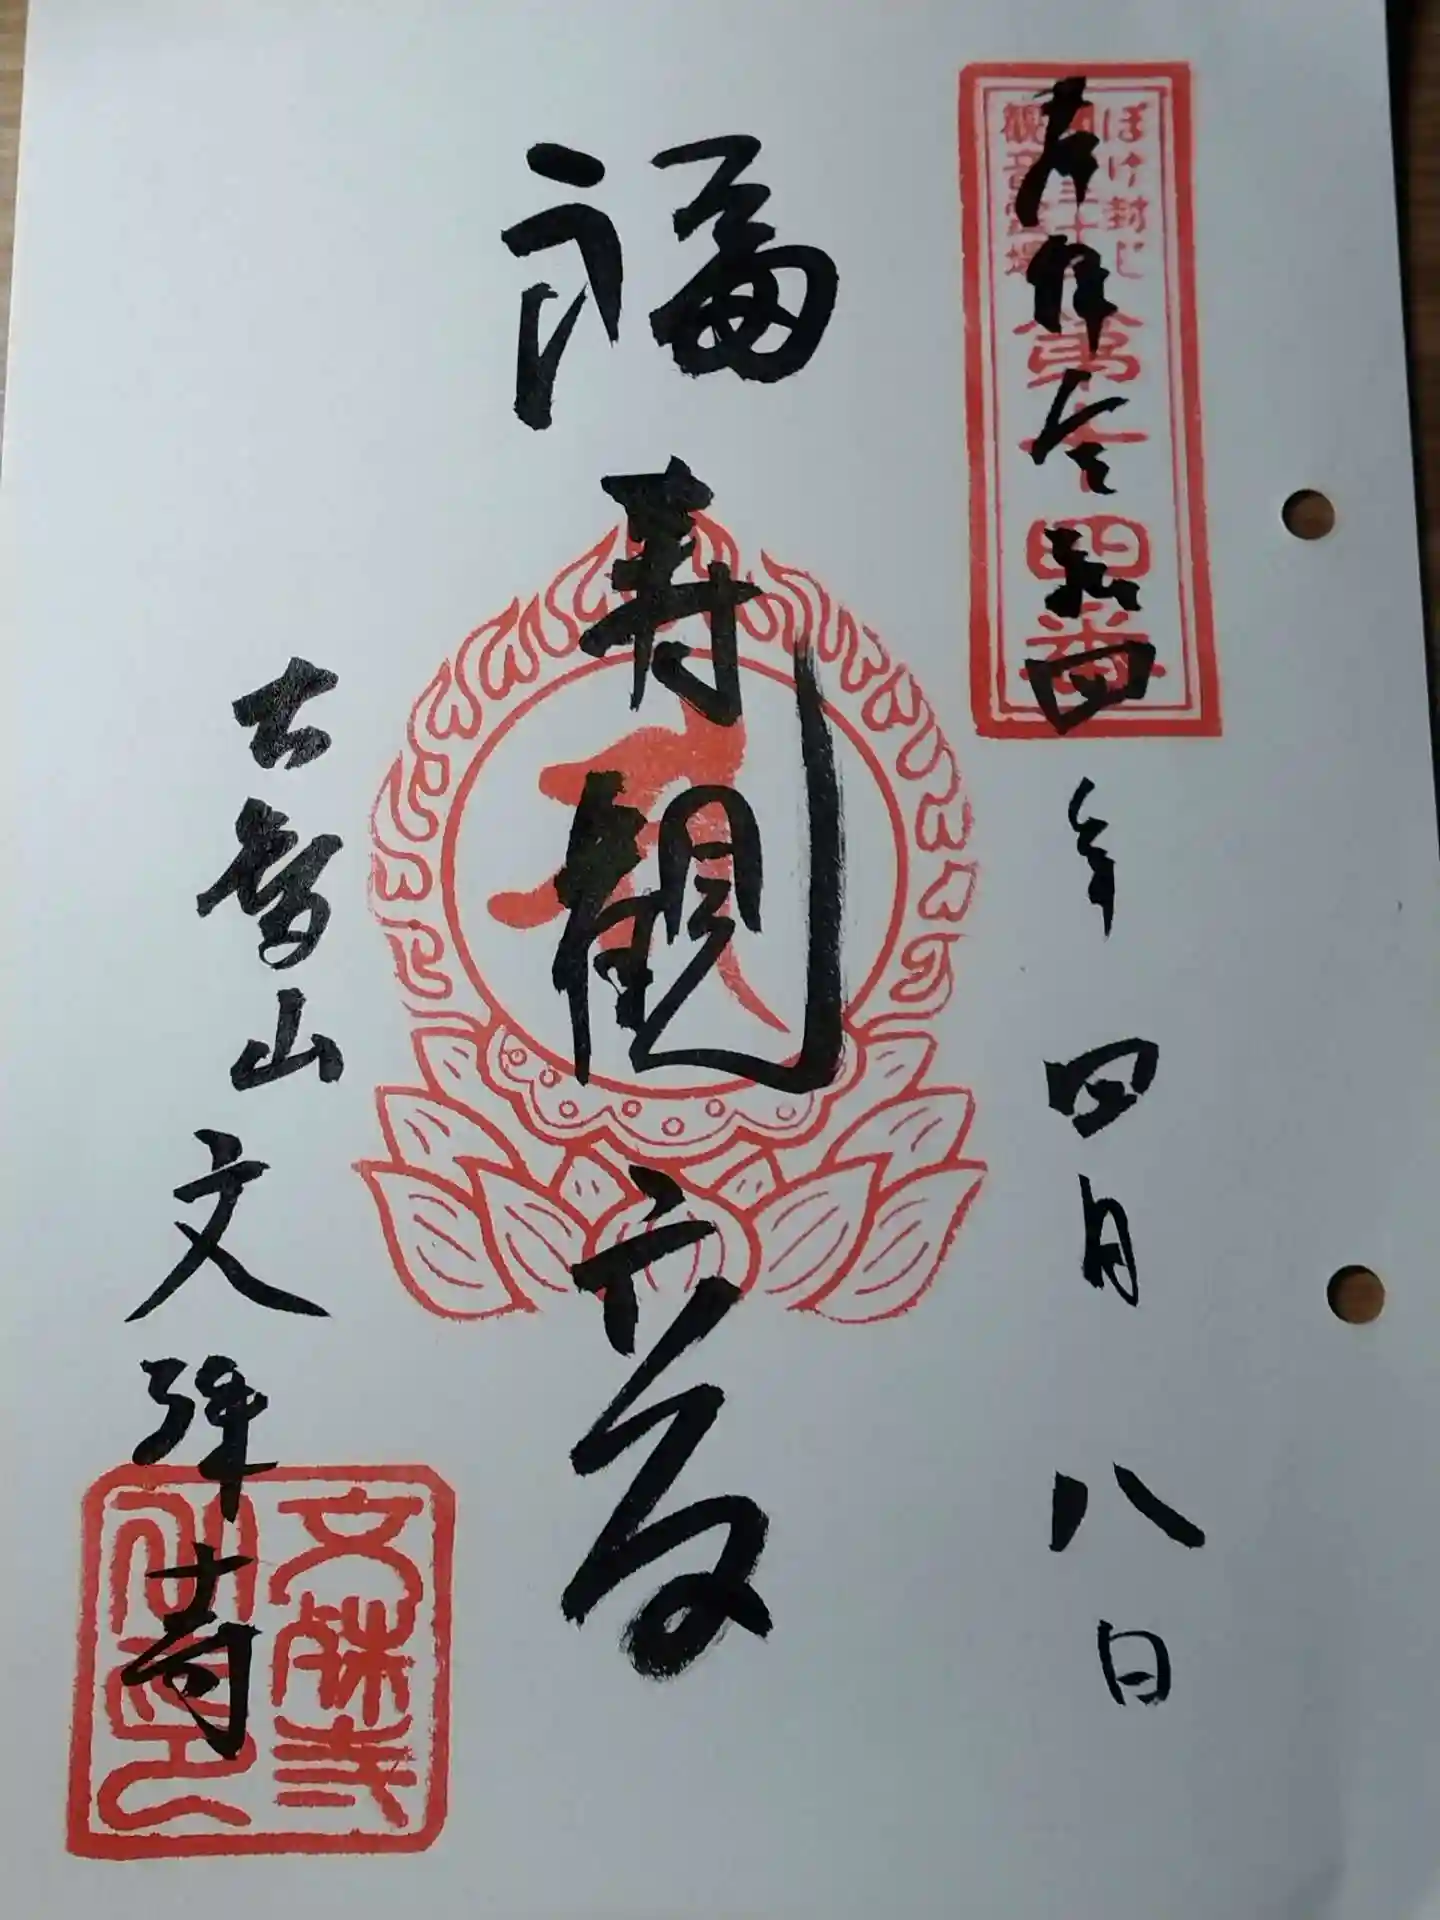 ぼけ封じ
観音霊場
第十四番
奉拝 令和四年四月八日
福寿観音
大智山 文殊寺
文殊寺